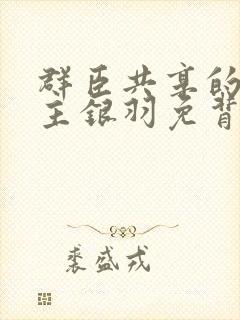 群臣共享的
主银羽兔背
裘盛戎